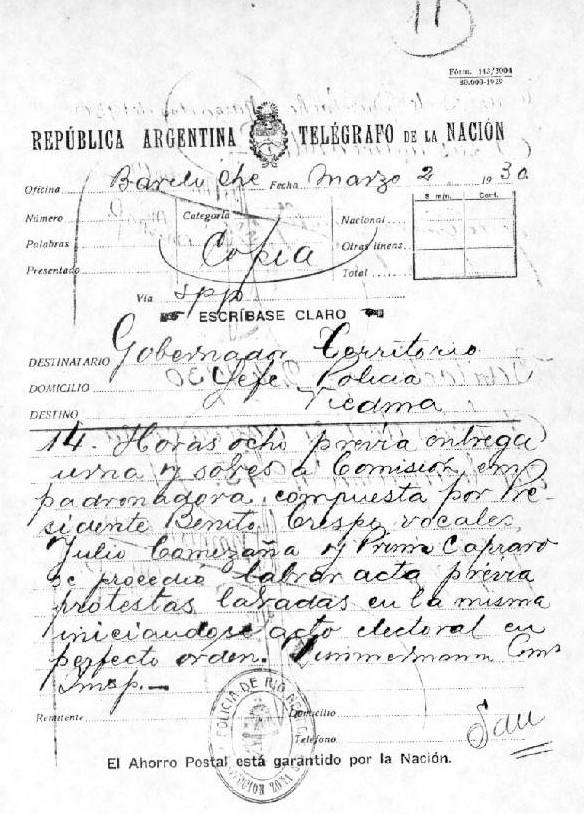 11
Fórm. 143/2004
80.000-1929
REPÚBLICA ARGENTINA TELÉGRAFO DE LA NACIÓN
Oficina Bareloche Fecha Marzo 2 1930
S min. Cent.
Número Categoría Nacional
Copia
Palabras Otras líneas
Presentado Total
Vía spp
ESCRÍBASE CLARO
DESTINATARIO Gobernador Territorio
DOMICILIO Jefe Policia
DESTINO Viedma
14. Horas ocho previa entrega
urna y sobres a Comisión em
padronadora compuesta por Pre-
sidente Benito Crespo, vocales,
Julio Comezaña y Primo Capraro
se procedió labrar acta previa
protestas labradas en la misma
iniciandose acto electoral en
perfecto orden. Zimmermann Coms
Insp.—
Remitente Domicilio
Teléfono
POLICIA DE RIO NEGRO
El Ahorro Postal está garantido por la Nación.